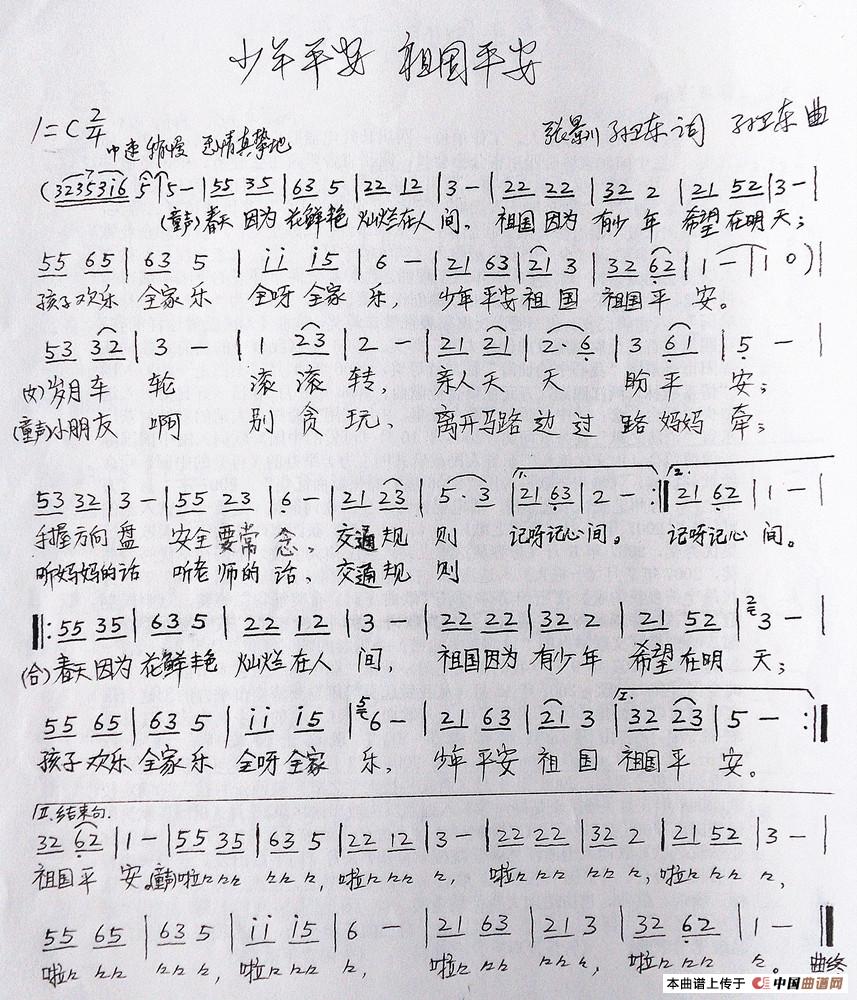 少年平安 祖国平安
1=C 2/4
中速稍慢 悲情真挚地
张景川 孙卫东 词 孙卫东 曲
(3235316 5 | 5 - | 55 35 | 63 5 | 22 12 | 3 - | 22 22 | 32 2 | 21 52 | 3 - |
(童声)春天 因为 花鲜艳 灿烂在人间, 祖国因为 有少年 希望在明天;
55 65 | 63 5 | i i i5 | 6 - | 21 63 | 21 3 | 32 62 | 1 - | 1 0 ) |
孩子欢乐 全家乐 全呀全家 乐, 少年平安祖国 祖国平 安。
53 32 | 3 - | 1 23 | 2 - | 21 21 | 2· 6 | 3 61 | 5 - |
(女)岁月车 轮 滚滚转, 亲人天 天 盼平 安;
(童声)小朋友 啊 别贪玩, 离开马路边过路妈妈 牵;
53 32 | 3 - | 55 23 | 6 - | 21 23 | 5· 3 | 1. 21 63 | 2 - :‖ 2. 21 62 | 1 - |
手握方向 盘 安全要常 念, 交通规 则 记呀记心间。 记呀记心 间。
听妈妈的话 听老师的 话, 交通规 则
‖: 55 35 | 63 5 | 22 12 | 3 - | 22 22 | 32 2 | 21 52 | 2 3 - |
(合)春天因为 花鲜艳 灿烂在人 间, 祖国因为 有少年 希望在明 天;
55 65 | 63 5 | i i i5 | 5 6 - | 21 63 | 21 3 | I. 32 23 | 5 - :‖
孩子欢乐 全家乐 全呀全家 乐, 少年平安 祖国 祖国平 安。
II.结束句.
32 62 | 1 - | 55 35 | 63 5 | 22 12 | 3 - | 22 22 | 32 2 | 21 52 | 3 - |
祖国平 安。(童声)啦
55 65 | 63 5 | i i i5 | 6 - | 21 63 | 21 3 | 32 62 | 1 - ‖
啦 啦 啦 啦 曲终
本曲谱上传于 中国曲谱网